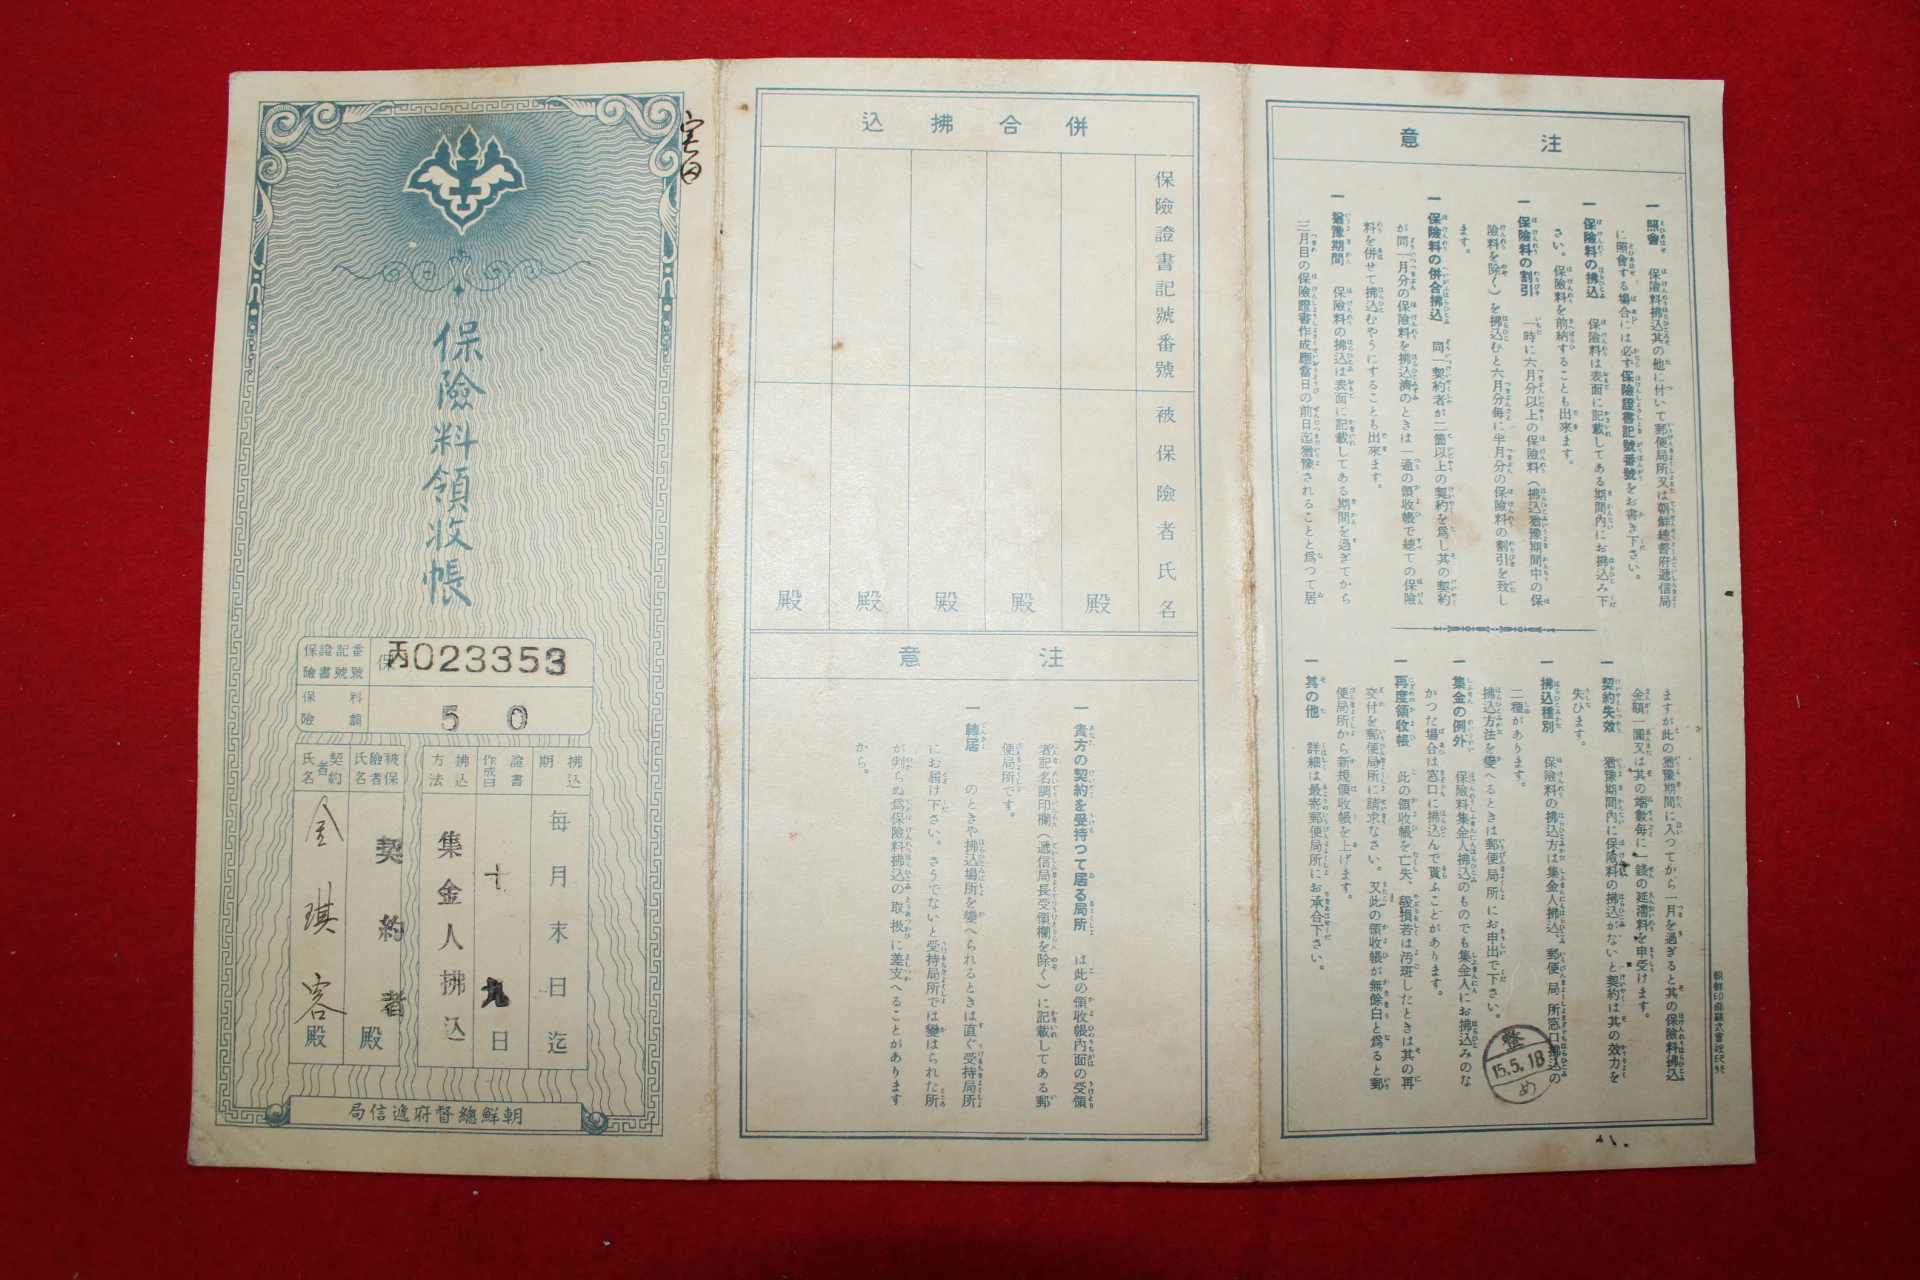 保險料領收帳
保險證書記號番號
保丙023353
保險料額
50
拂込期
毎月末日迄
證書作成日
十九日
拂込方法
集金人拂込
被保險者氏名
契約者殿
契約者氏名
金琪容殿
朝鮮總督府遞信局
併合拂込
保險證書記號番號
被保險者氏名
殿
殿
殿
殿
殿
注意
一 貴方の契約を受持つて居る局所 は此の領收帳内面の受領
者記名調印欄（遞信局長受領欄を除く）に記載してある郵
便局所です。
一 轉居 のときや拂込場所を變へられるときは直ぐ受持局所
にお屆け下さい。さうでないと受持局所では變はられた所
が判らぬ爲保險料拂込の取扱に差支へることがあります
から。
注意
一 照會 保險料拂込其の他に付いて郵便局所又は朝鮮總督府遞信局
に照會する場合には必ず保險證書記號番號をお書き下さい。
一 保險料の拂込 保險料は表面に記載してある期間内にお拂込み下
さい。保險料を前納することも出來ます。
一 保險料の割引 一時に六月分以上の保險料（拂込猶豫期間中の保
險料を除く）を拂込むと六月分毎に半月分の保險料の割引を致し
ます。
一 保險料の併合拂込 同一契約者が二箇以上の契約を爲し其の契約
が同一月分の保險料を拂込濟のときは一通の領收帳で總ての保險
料を併せて拂込むやうにすることも出來ます。
一 猶豫期間 保險料の拂込は表面に記載してある期間を過ぎてから
三月目の保險證書作成應當日の前日迄猶豫されることと爲つて居
ますが此の猶豫期間に入つてから一月を過ぎると其の保險料拂込
金額一圓又は其の端數毎に一錢の延滯料を申受けます。
一 契約失效 猶豫期間内に保險料の拂込がないと契約は其の效力を
失ひます。
一 拂込種別 保險料の拂込方は集金人拂込、郵便局所窓口拂込の
二種があります。
拂込方法を變へるときは郵便局所にお申出で下さい。
一 集金の例外 保險料集金人拂込のものでも集金人にお拂込みのな
かつた場合は窓口に拂込んで貰ふことがあります。
一 再度領收帳 此の領收帳を亡失、毀損若は汚斑したときは其の再
交付を郵便局所に請求なさい。又此の領收帳が無餘白と爲ると郵
便局所から新規領收帳を上げます。
一 其の他 詳細は最寄郵便局所にお承合下さい。
整
15.5.18
め